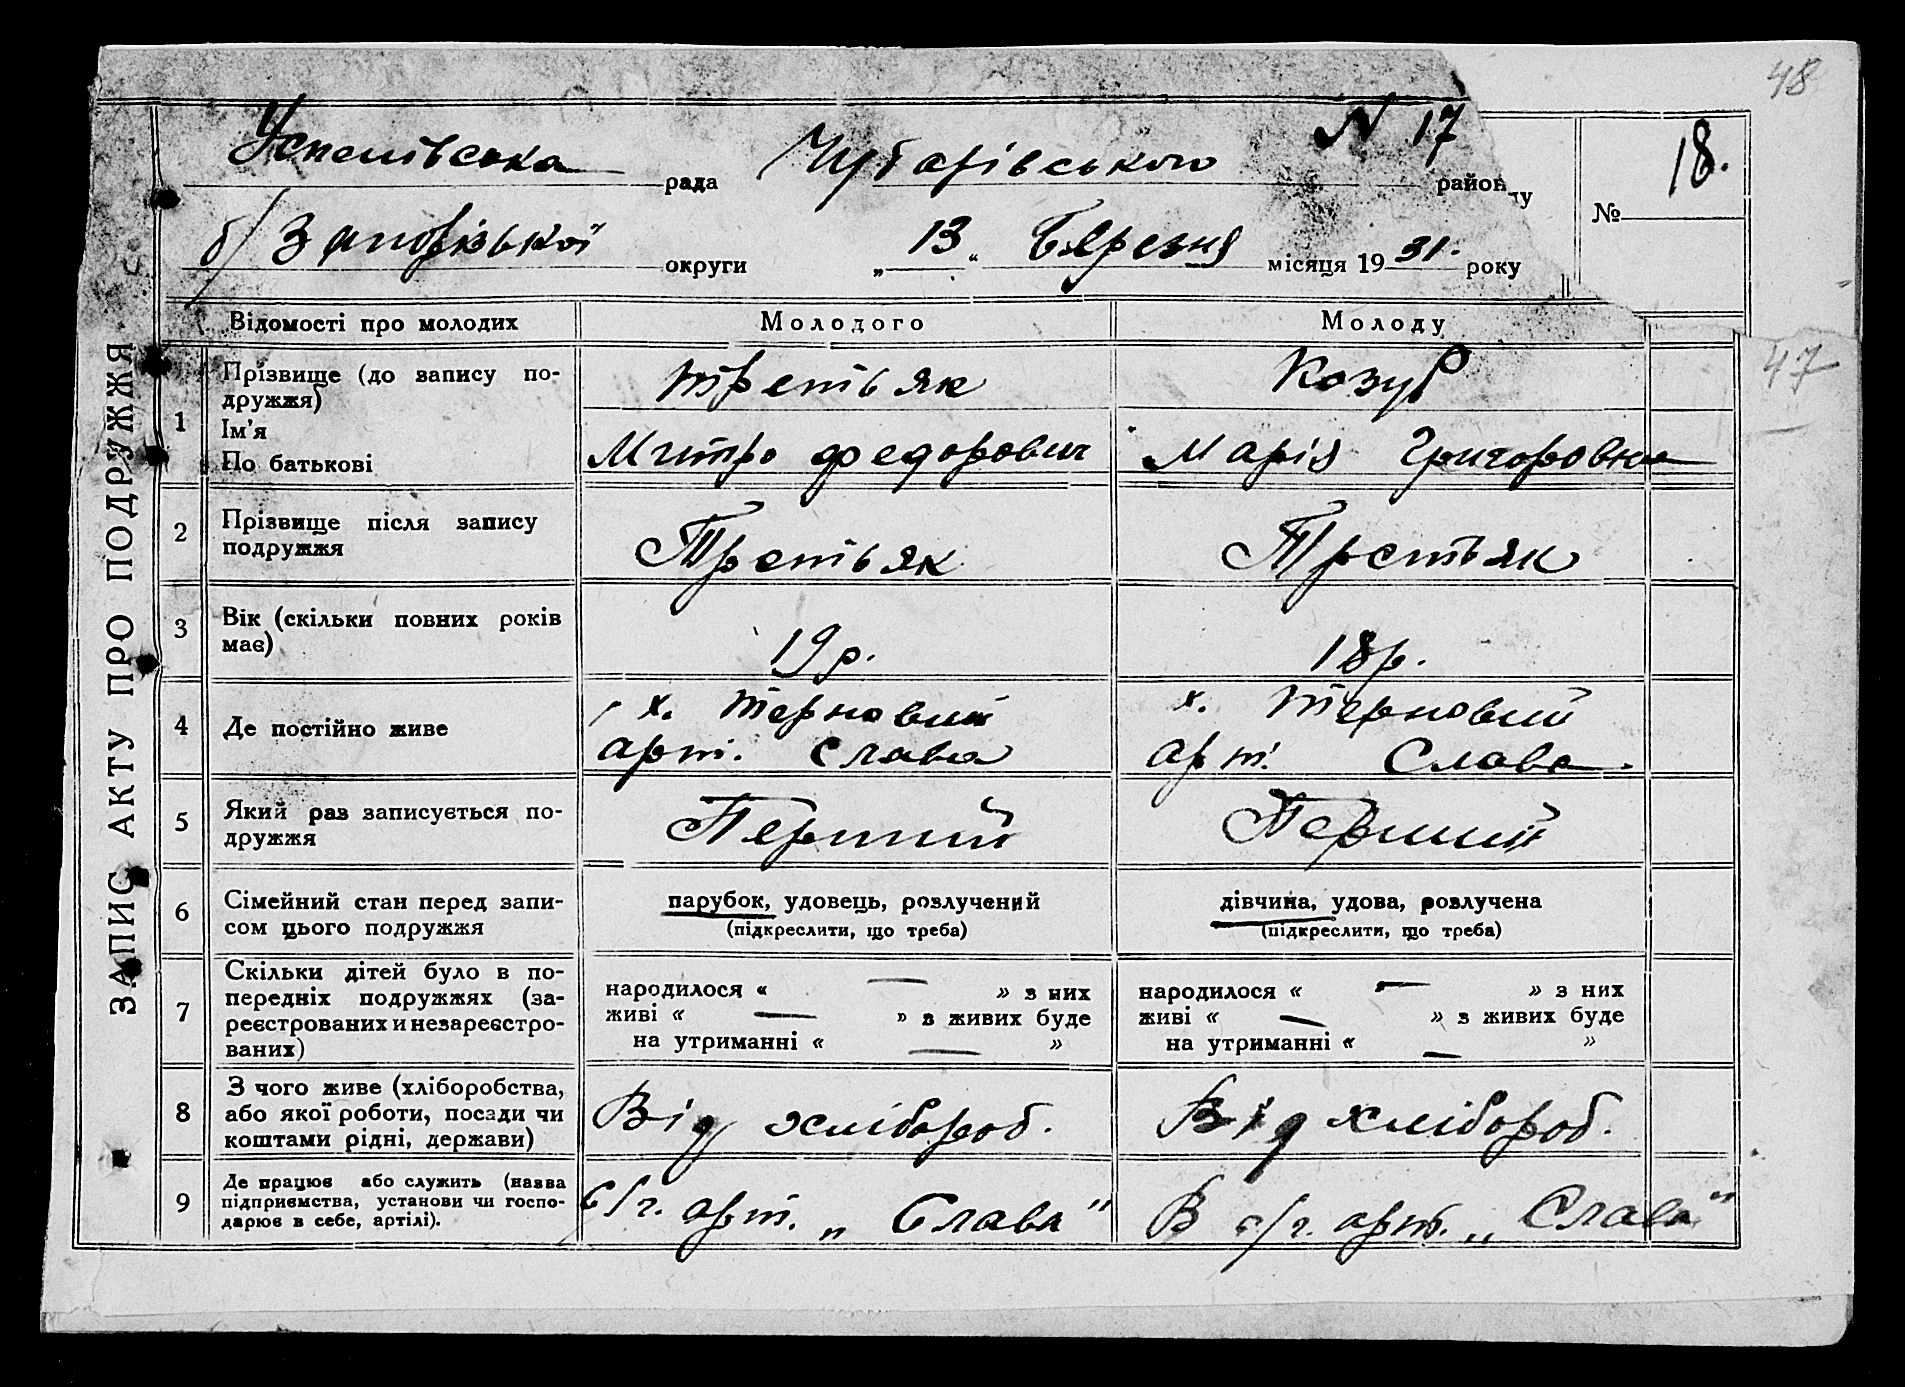 48
N 17
Успенівська рада Чубарівського району
№ 18.
б/ Запорізької округи „ 13 “ Березня місяця 19 31. року
ЗАПИС АКТУ ПРО ПОДРУЖЖЯ
Відомості про молодих Молодого Молоду
47
1 Прізвище (до запису по-
дружжя)
Ім'я
По батькові
Третьяк
Митро Федорович
Козур
Марія Григоровна
2 Прізвище після запису
подружжя
Третьяк
Третьяк
3 Вік (скільки повних років
має)
19 р.
18 р.
4 Де постійно живе
х. Терновий
арт. Слава
х. Терновий
арт. Слава.
5 Який раз записується по-
дружжя
Перший
Перший
6 Сімейний стан перед запи-
сом цього подружжя
парубок, удовець, розлучений
(підкреслити, що треба)
дівчина, удова, розлучена
(підкреслити, що треба)
7 Скільки дітей було в по-
передніх подружжях (за-
реєстрованих и незареєстро-
ваних)
народилося « — » з них
живі « — » з живих буде
на утриманні « — »
народилося « — » з них
живі « — » з живих буде
на утриманні « — »
8 З чого живе (хліборобства,
або якої роботи, посади чи
коштами рідні, держави)
Від хлібороб.
Від хлібороб.
9 Де працює або служить (назва
підприємства, установи чи госпо-
дарює в себе, артілі).
С/г. арт. „Слава"
В с/г. арт. „Слава"